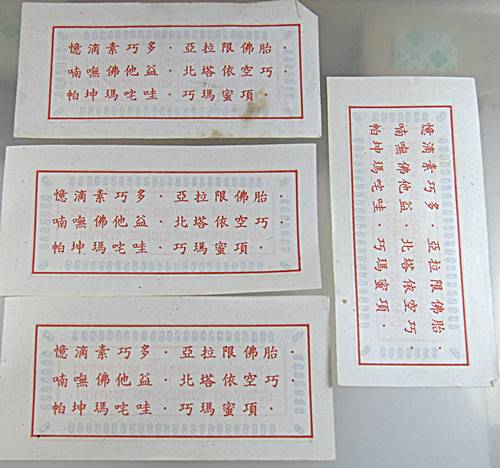 憶滴素巧多．亞拉限佛胎．
喃嘸佛他益．北塔依空巧．
帕坤瑪咤哇．巧瑪蜜項．
憶滴素巧多．亞拉限佛胎．
喃嘸佛他益．北塔依空巧．
帕坤瑪咤哇．巧瑪蜜項．
憶滴素巧多．亞拉限佛胎．
喃嘸佛他益．北塔依空巧．
帕坤瑪咤哇．巧瑪蜜項．
憶滴素巧多．亞拉限佛胎．
喃嘸佛他益．北塔依空巧．
帕坤瑪咤哇．巧瑪蜜項．